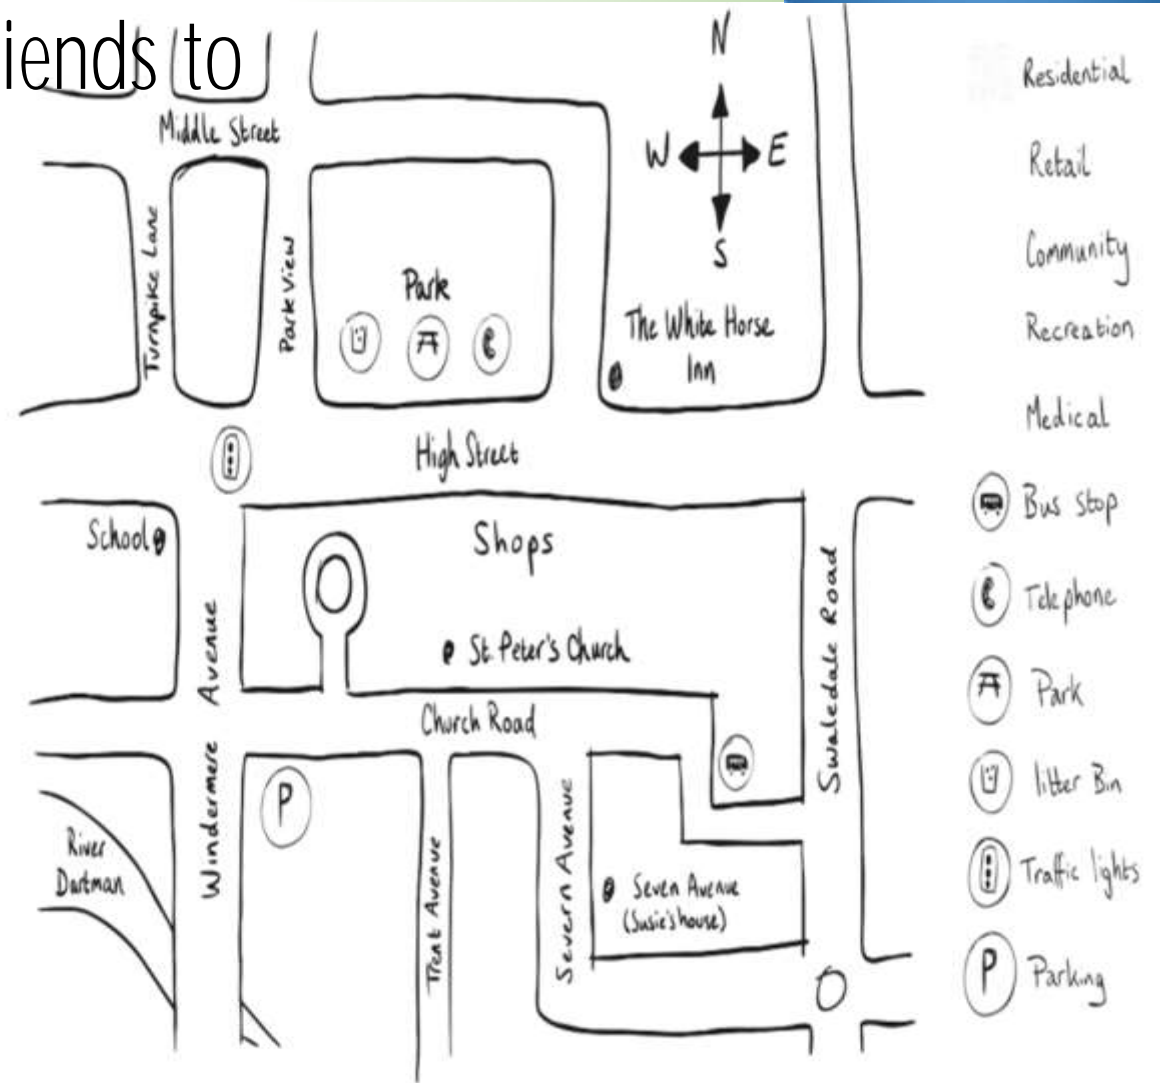 iends to
N
W E
S
Middle Street
Turnpike Lane
Park View
Park
The White Horse
Inn
High Street
School
Shops
St. Peter's Church
Church Road
Windermere Avenue
Swaledale Road
P
River
Dartman
Trent Avenue
Severn Avenue
Seven Avenue
(Susie's house)
Residential
Retail
Community
Recreation
Medical
Bus Stop
Telephone
Park
litter Bin
Traffic lights
P Parking